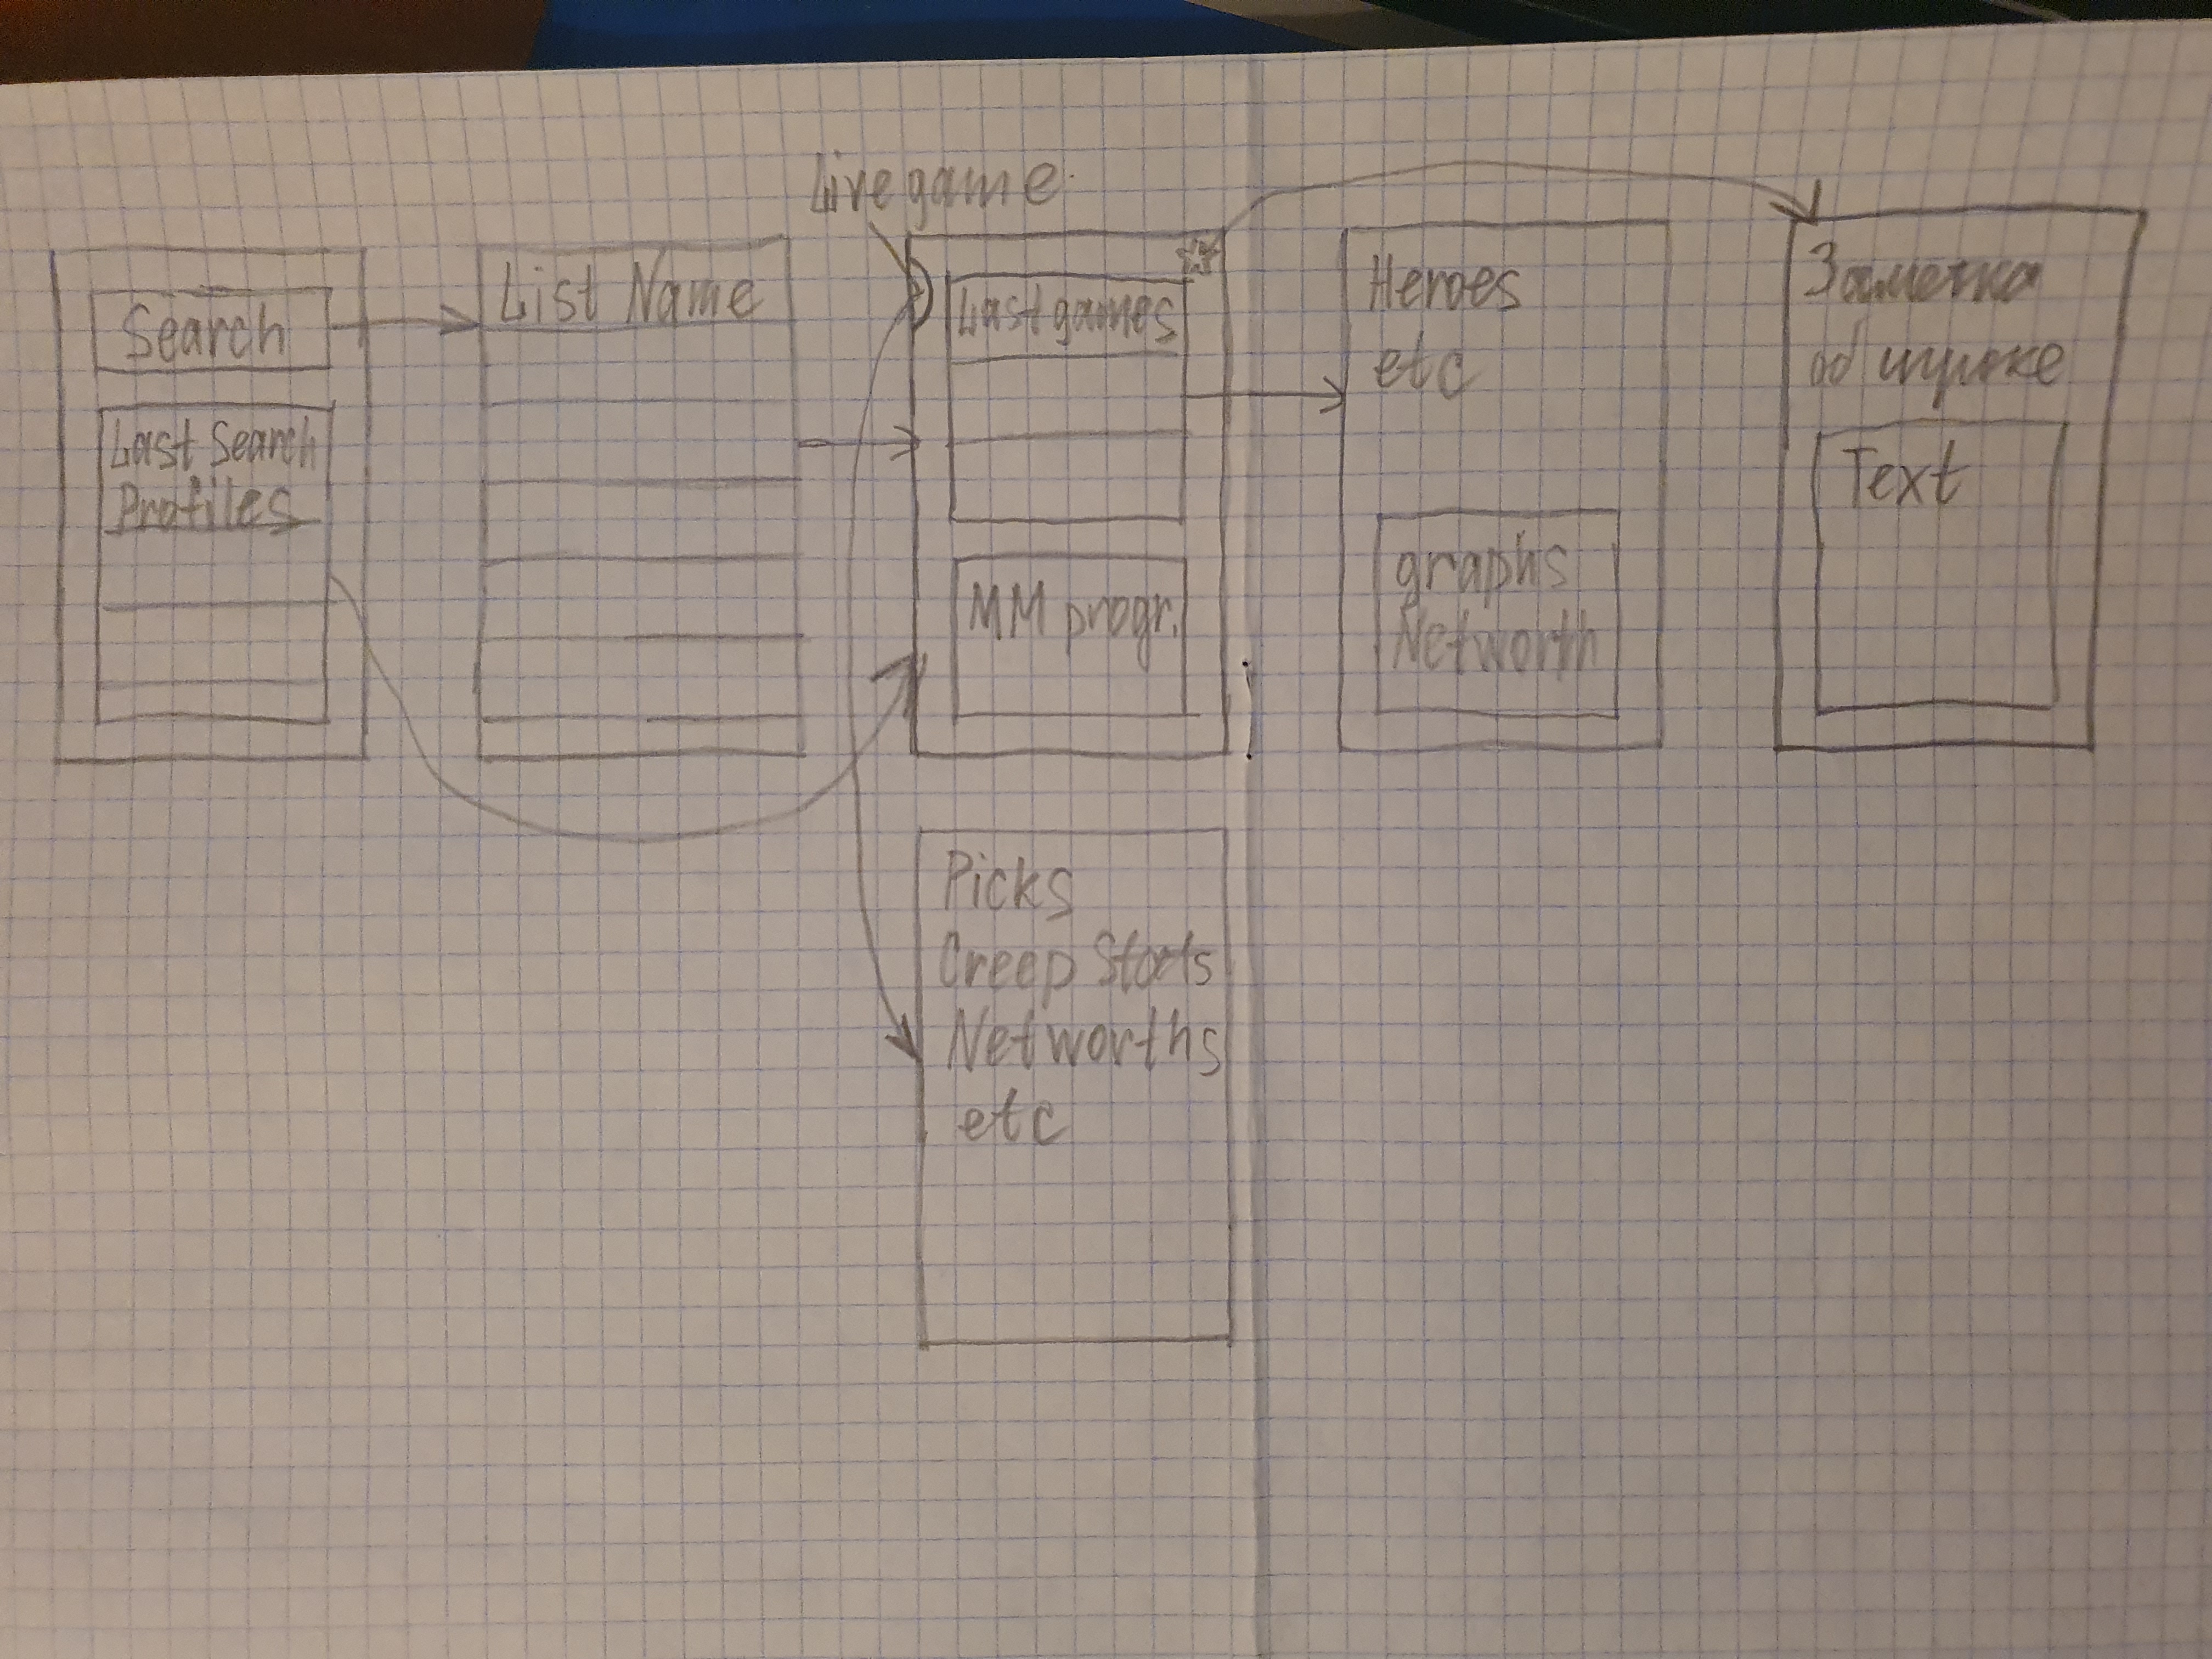 Live game
Search
Last Search
Profiles
List Name
Last games
MM progr.
Heroes
etc
graphs
Networth
Заметка
об игроке
Text
Picks
Creep Stats
Networths
etc